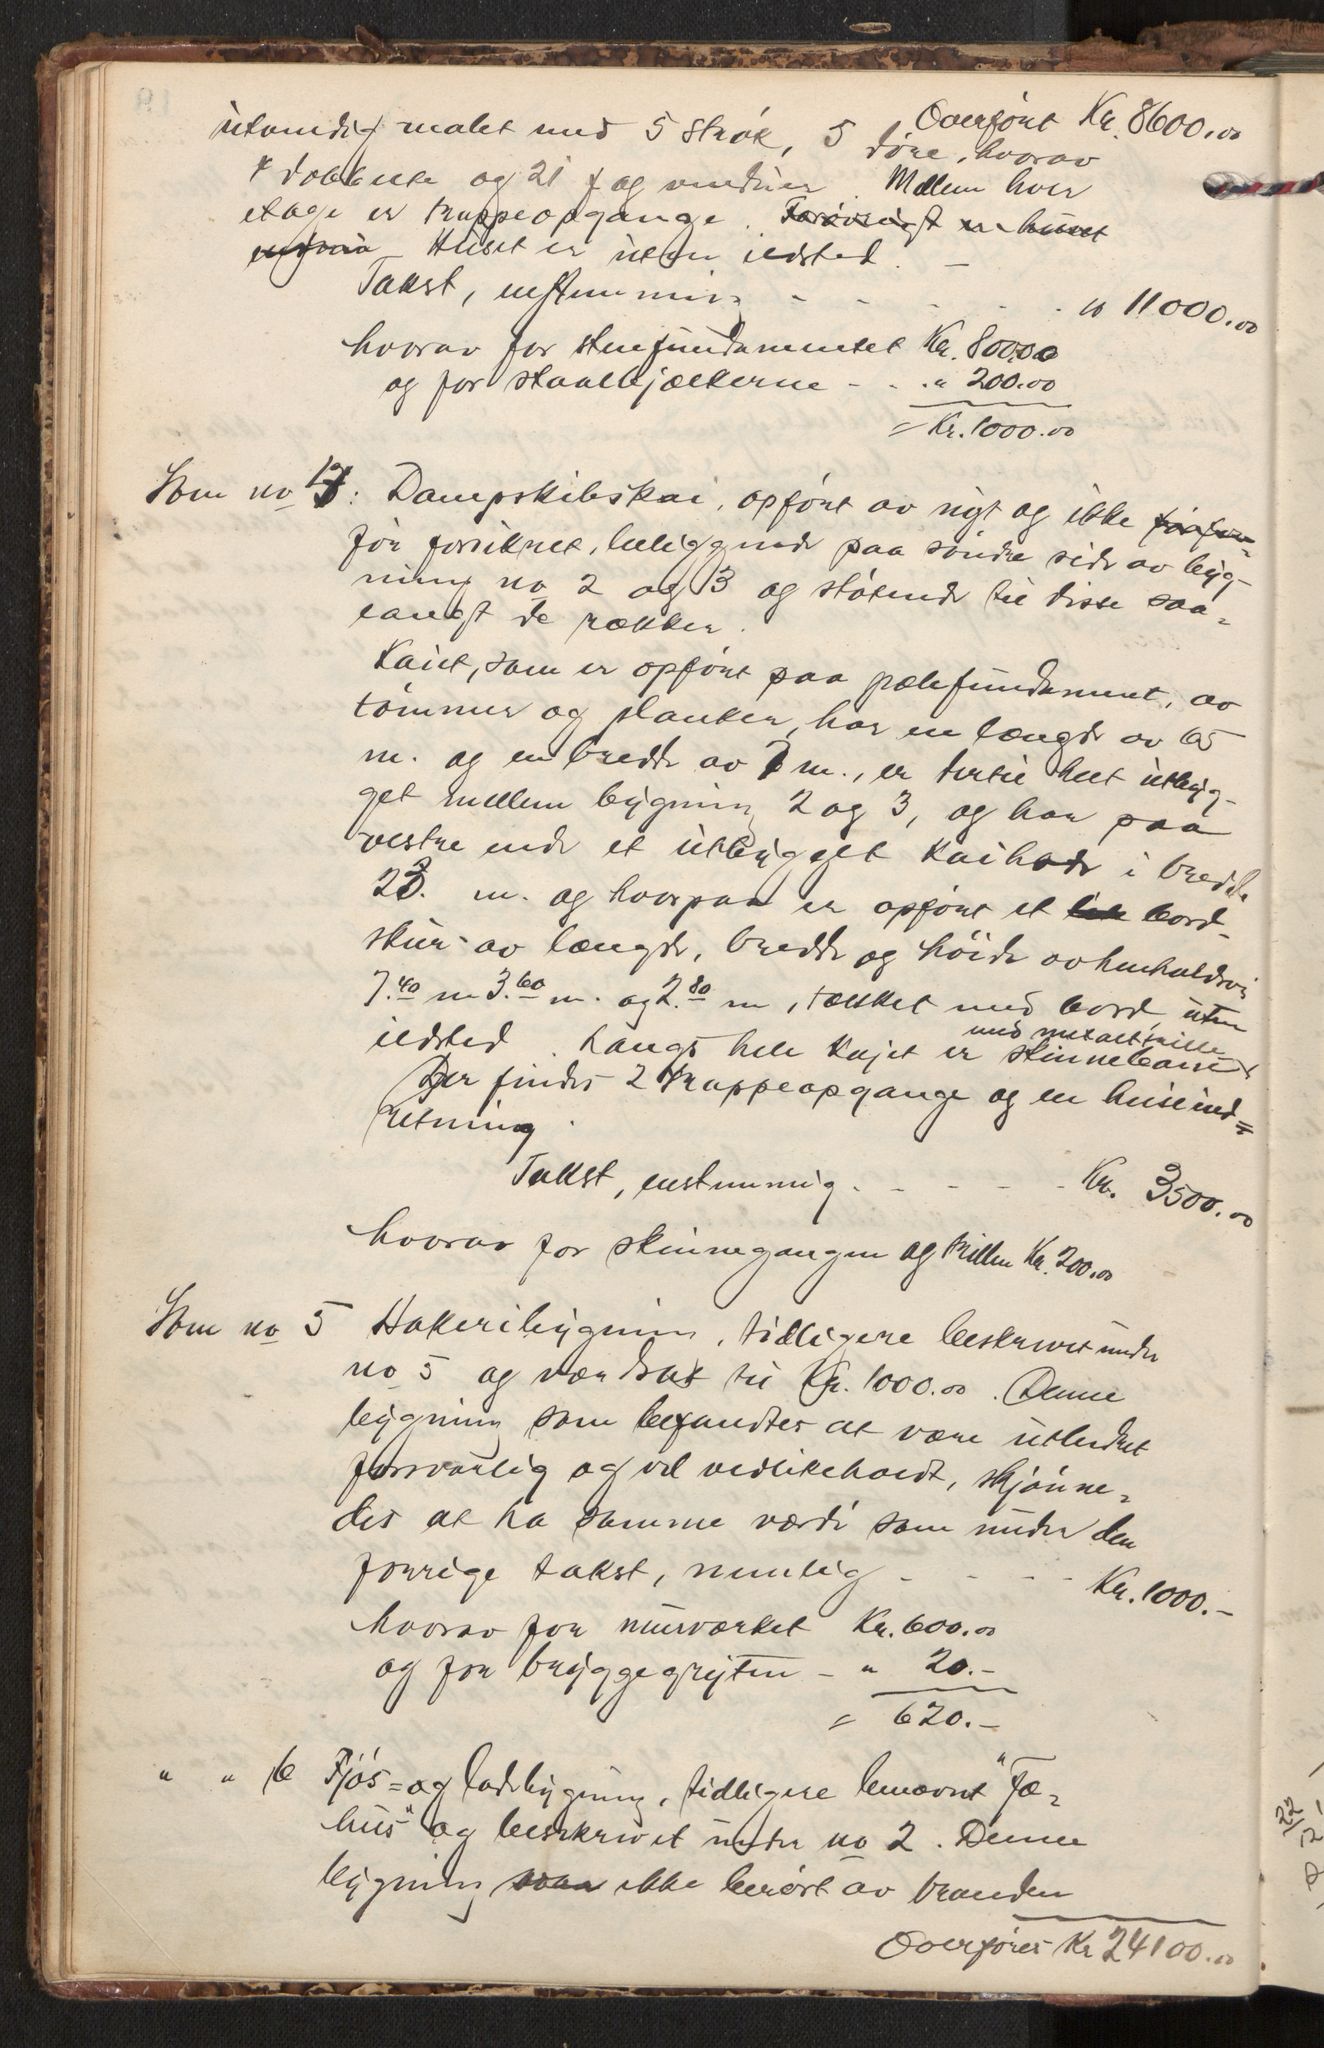 Overført Kr. 8600.00
utvendig malet med 5 strøk, 5 døre, hvorav
4 dobbelte og 21 fag vinduer. Mellem hver
etage er trappeopgange. Forøvrigt er huset
Huset er uten ildsted. –
Takst, enstemmig - - - - - " 11000.00
hvorav for stenfundamentet Kr. 800.00
og for staalbjælkerne - - . " 200.00
= Kr. 1000.00
Som no 4: Dampskibskai, opført av nyt og ikke
før forsikret, beliggende paa søndre side av byg-
ning no 2 og 3 og støtende til disse saa-
langt de rækker.
Kaiet, som er opført paa pælefundament, av
tømmer og planker, har en længde av 65
m. og en bredde av 7 m., er dertil helt utbyg-
get mellem bygning 2 og 3, og har paa
vestre ende et utbygget kaihode i bredde
23. m. og hvorpaa er opført et bord-
skur av længde, bredde og høide avhenholdsvis
7.40 m 3.60 m. og 2.80 m, tækket med bord, uten
ildsted. Langs hele kajet er skinnebane
med metaltrille
Der findes 2 trappeopgange og en heiseind=
retning.
Takst, enstemmig. - - - - - Kr. 3500.00
hvorav for skinnegangen og trillen Kr. 200.00
Som no 5 Hakeribygning, tidligere beskrevet under
no 5 og værdsat til Kr. 1000.00. Denne
bygning som befandtes at være utbedret
forsvarlig og vel vedlikeholdt, skjønne-
des at ha samme værdi som under den
forrige takst, nemlig - - - - Kr. 1000.-
hvorav for murverket Kr. 600.00
og for bryggegryten - " 20.-
= 620.-
" " 6 Fjøs= og ladebygning, tidligere benævnt "Fæ-
hus" og beskrevet under no 2. Denne
bygning ikke berørt av branden
Overføres Kr 24100.00